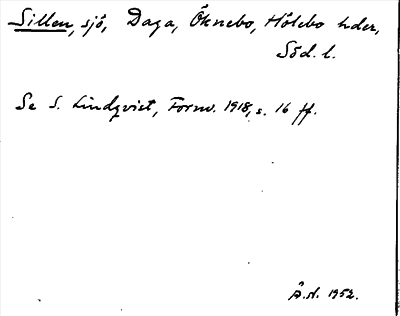 Sillen, sjö, Daga, Öknebo, Hölebo hder,
Söd. l.
Se S. Lindqvist, Fornv. 1918, s. 16 ff.
Å.St. 1952.